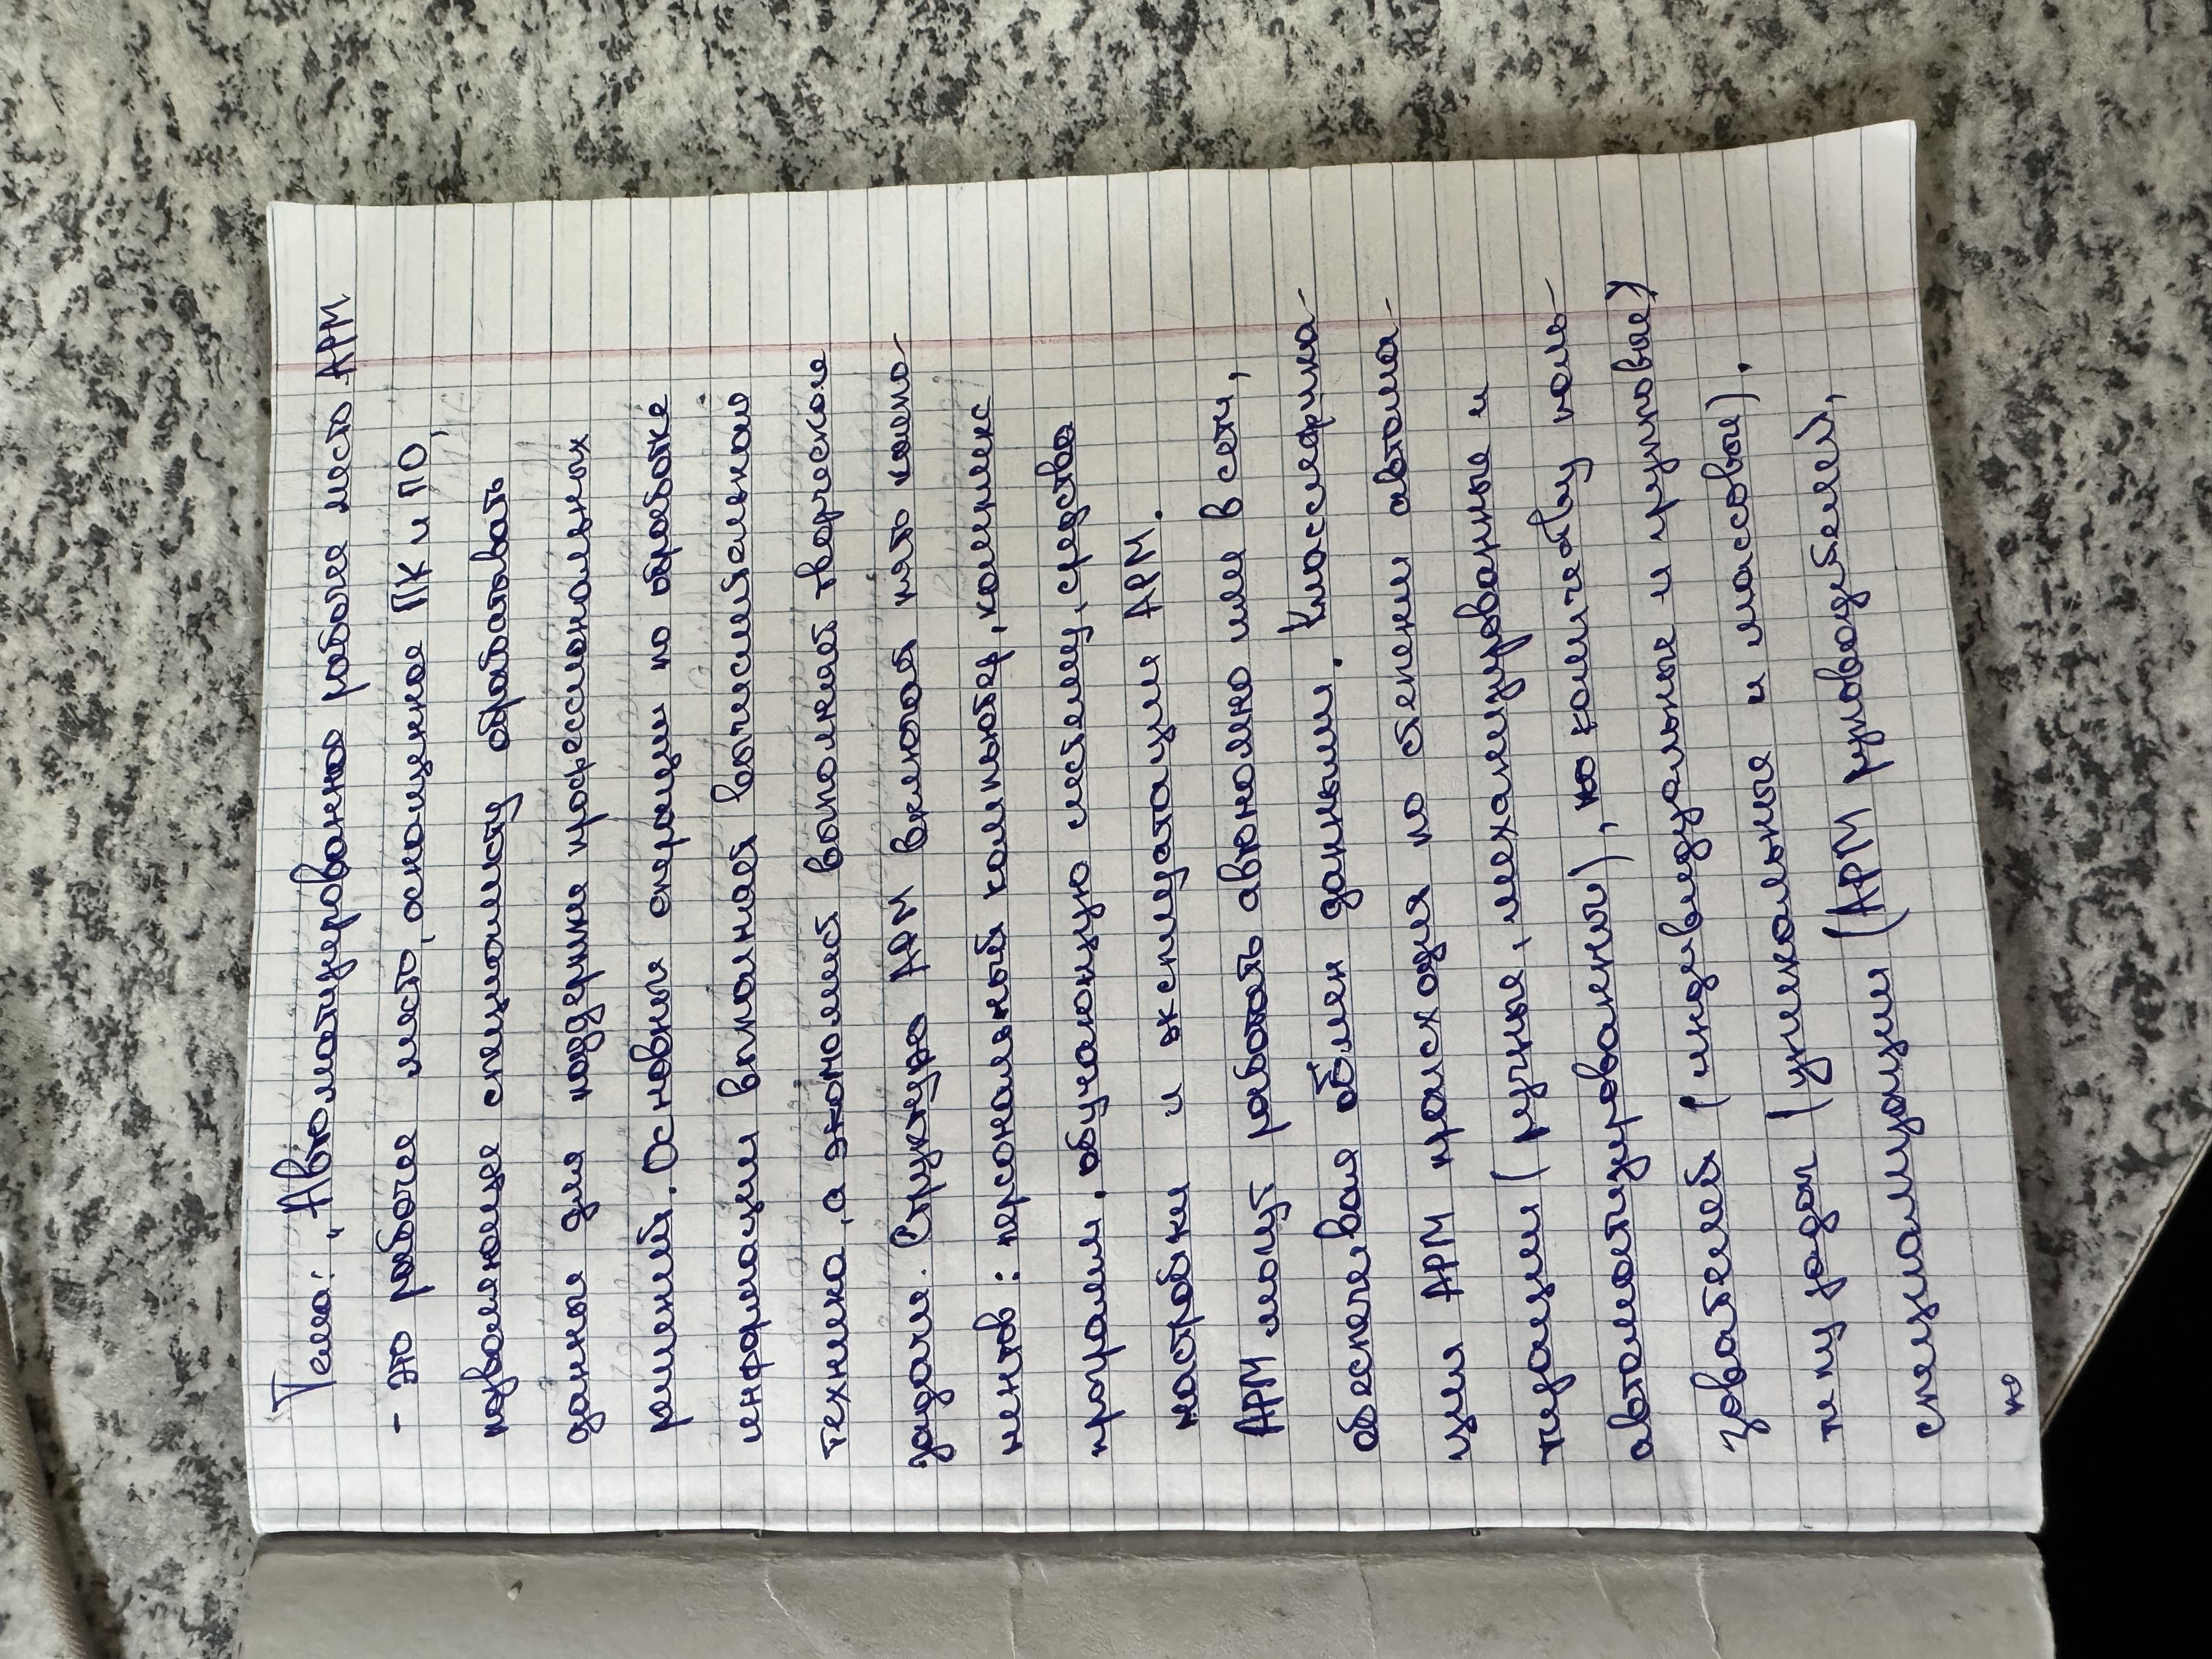 Тема: "Автоматизированное рабочее место АРМ
- это рабочее место, оснащенное ПК и ПО,
позволяющее специалисту обрабатывать
данные для поддержки профессиональных
решений. Основные операции по обработке
информации выполняет вычислительною
техника, а экономист выполняет творческие
задачи. Структура АРМ включает пять компо-
нентов: персональный компьютер, комплекс
програм, обучающую систему, средства
настройки и эксплуатации АРМ.
АРМ могут работать автономно или в сети,
обеспечивая обмен данными. Классифика-
ция АРМ происходит по степени автома-
тизации (ручные, механизированные и
автоматизированны), по количеству поль-
зователей (индивидуальные и групповые)
типу задач (уникальные и массовые).
специализации (АРМ руководителей,